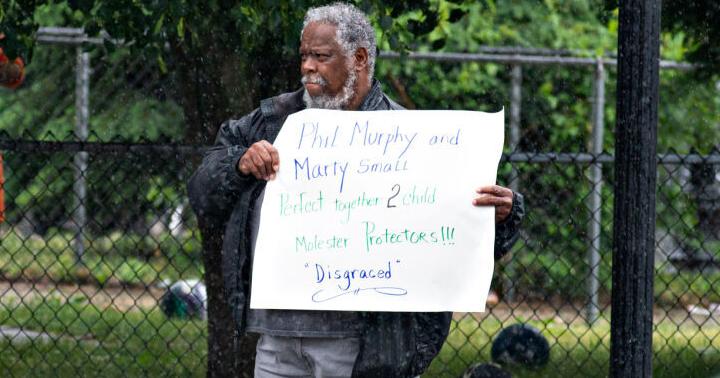 Phil Murphy and
Marty Small
Perfect together 2 child
Molester Protectors!!!
"Disgraced"